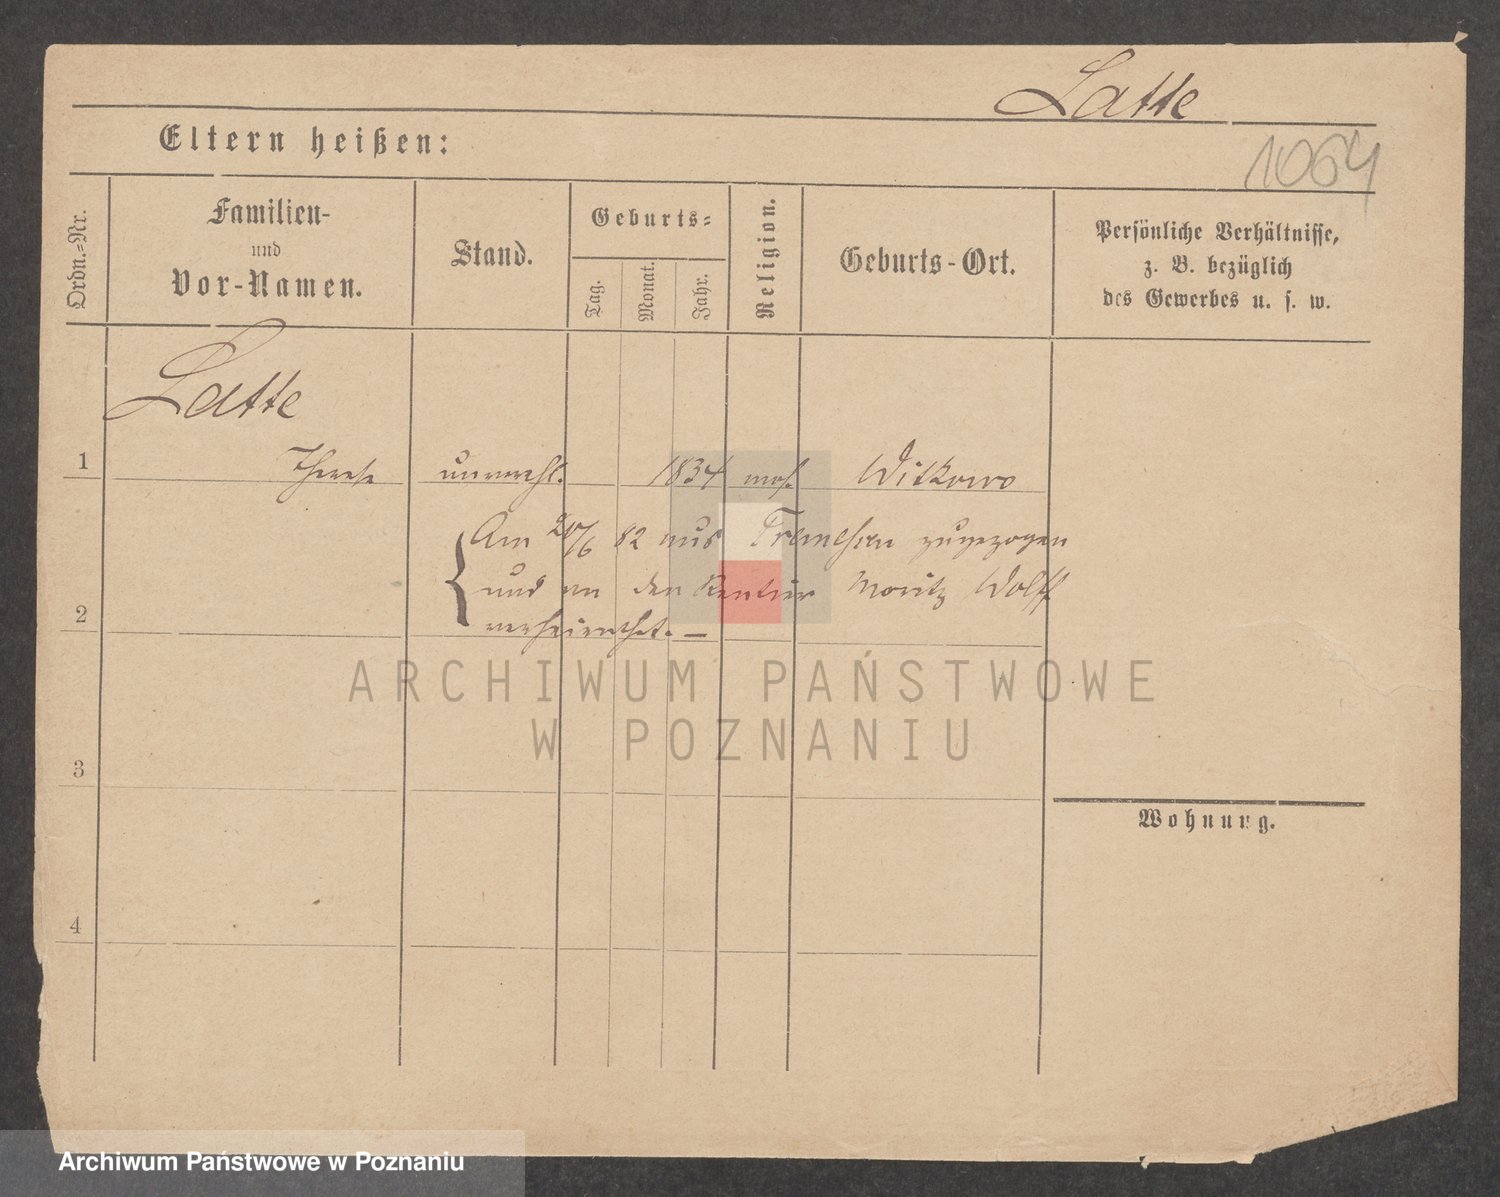 Latte
Eltern heißen:
1064
Ordn.-Nr.
Familien-
und
Vor-Namen.
Stand.
Geburts-
Tag.
Monat.
Jahr.
Religion.
Geburts-Ort.
Persönliche Verhältnisse,
z. B. bezüglich
des Gewerbes u. s. w.
Latte
1 Therese unverehl. 1834 mos. Witkowo
Am 20/6 82 aus Tremessen zugezogen
und an den Rentier Moritz Wolff
2 verheirathet. —
ARCHIWUM PAŃSTWOWE
W POZNANIU
3
Wohnung.
4
Archiwum Państwowe w Poznaniu